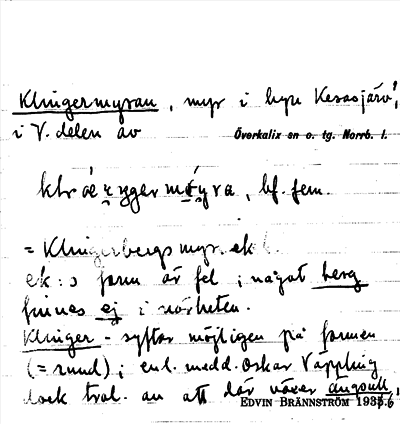 Klingermyran, myr i byn Kesasjärv,
i V. delen av Överkalix sn o. tg. Norrb. l.
bf. fem.
= Klingerbergsmyr. ek
ek:s form är fel; något berg
finnes ej i närheten.
Klinger- syftar möjligen på formen
(= rund); enl. medd. Oskar Väppling
dock trol. an att där växer
EDVIN BRÄNNSTRÖM 1935.